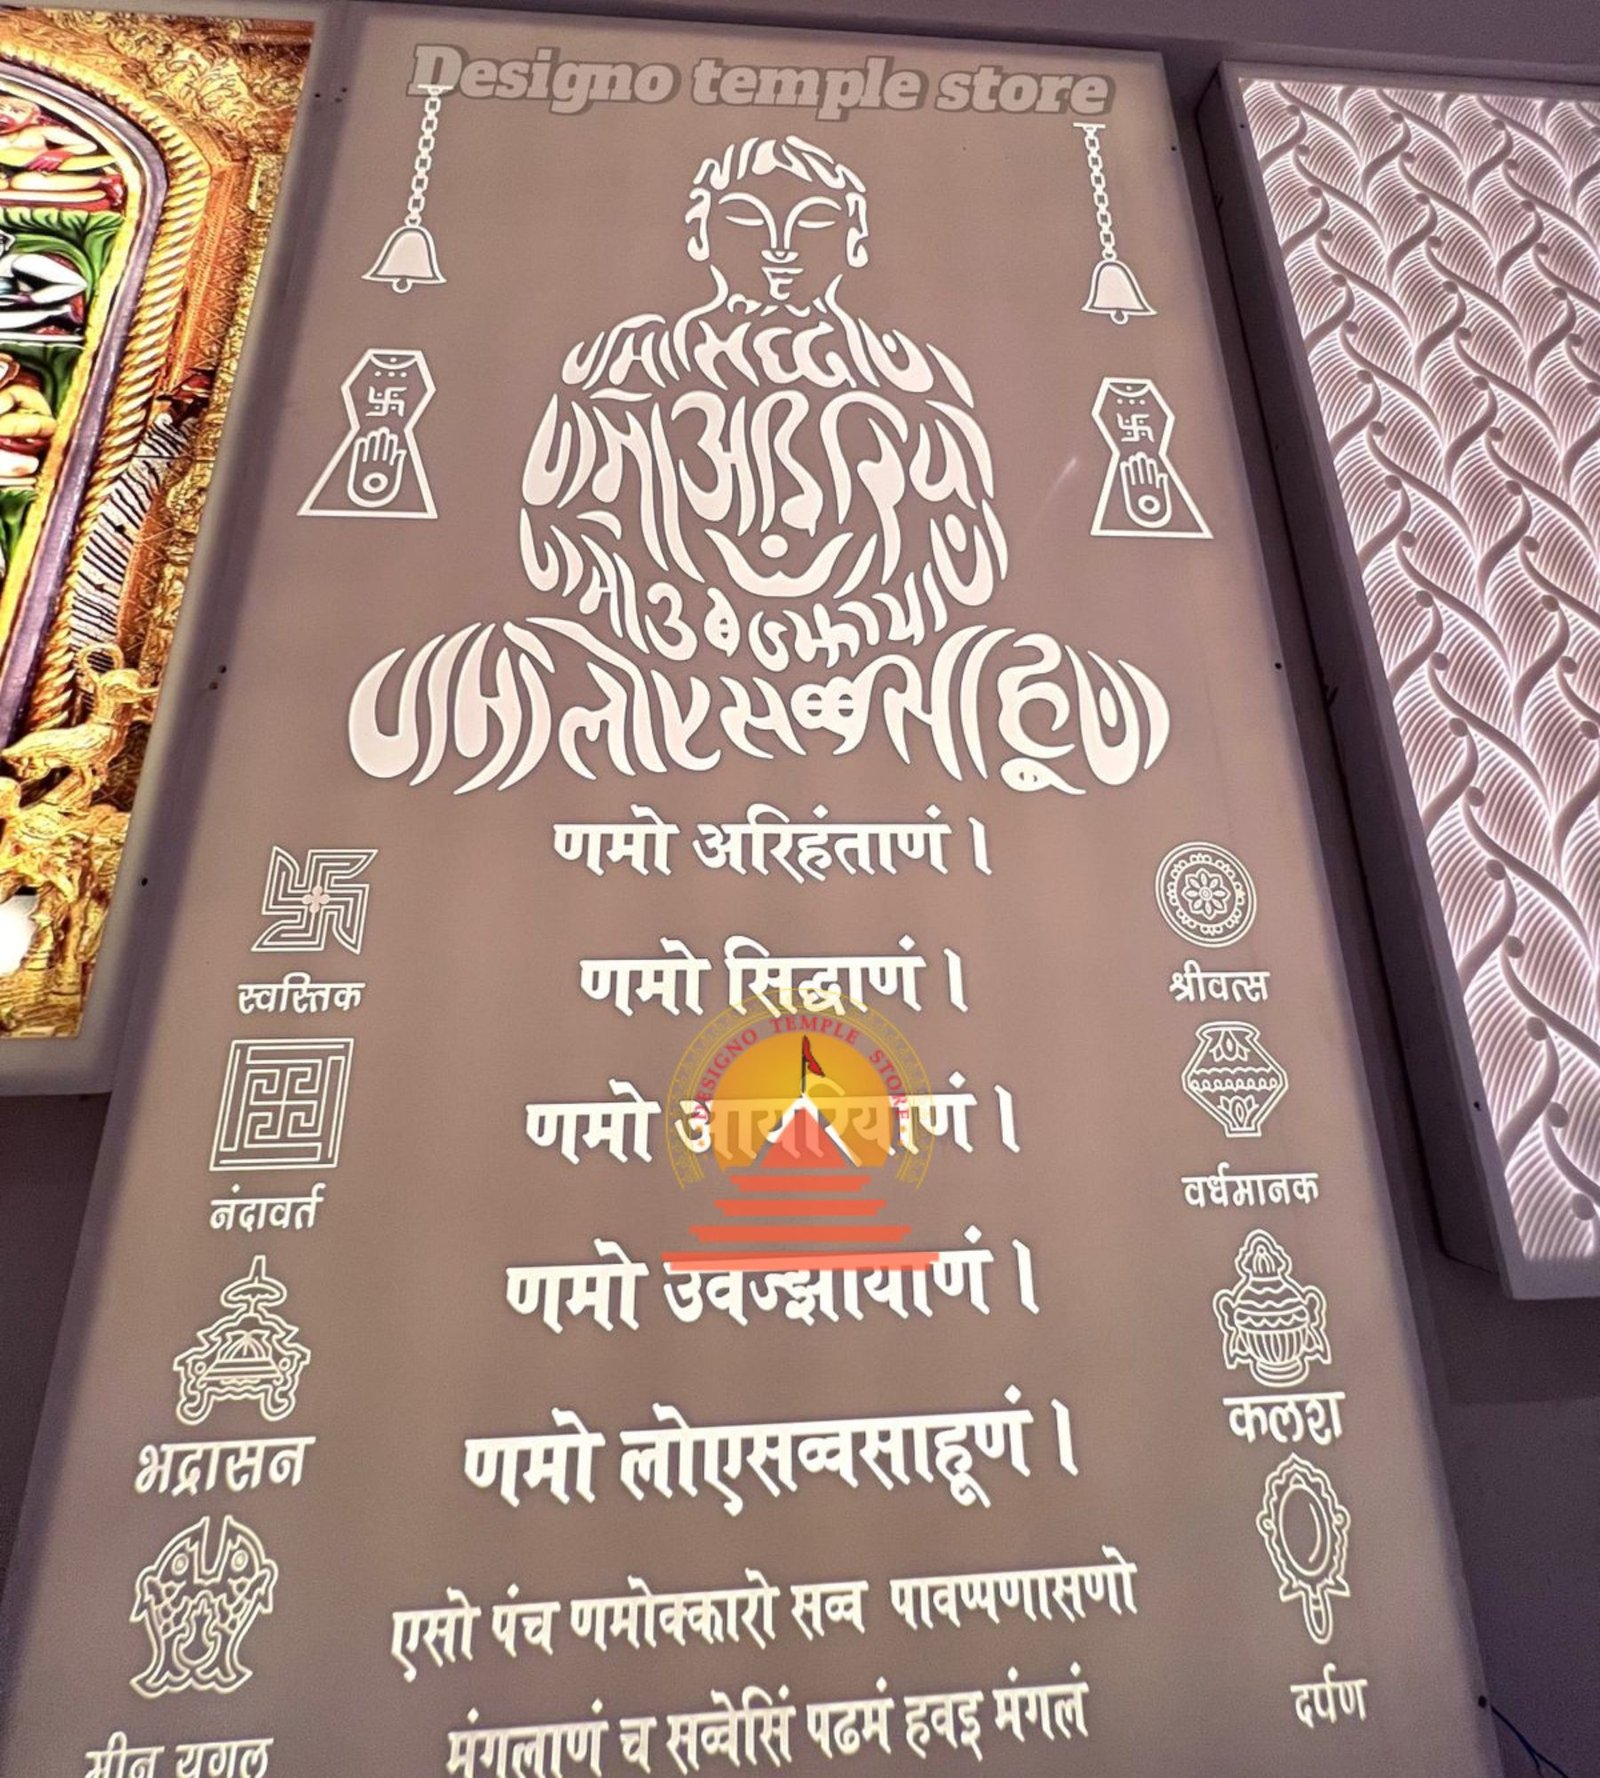 Designo temple store
णमो सिद्धाणं
णमो आइरियाणं
णमो उवज्झायाणं
णमो लोए सव्व साहूणं
णमो अरिहंताणं ।
स्वस्तिक
श्रीवत्स
णमो सिद्धाणं ।
DESIGNO TEMPLE STORE
णमो आयरियाणं ।
नंदावर्त
वर्धमानक
णमो उवज्झायाणं ।
भद्रासन
कलश
णमो लोएसव्वसाहूणं ।
एसो पंच णमोक्कारो सव्व पावप्पणासणो
मंगलाणं च सव्वेसिं पढमं हवइ मंगलं
मीन युगल
दर्पण